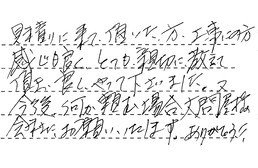 見積りに来て頂いた方、工事の方
感じも良く とても親切に教えて
頂き、良くやって下さいました。又
今後、何か頼む場合、大問屋様
会社にお願いいたします。ありがとう!